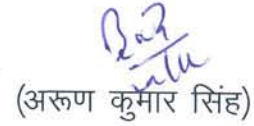 (अरूण कुमार सिंह)